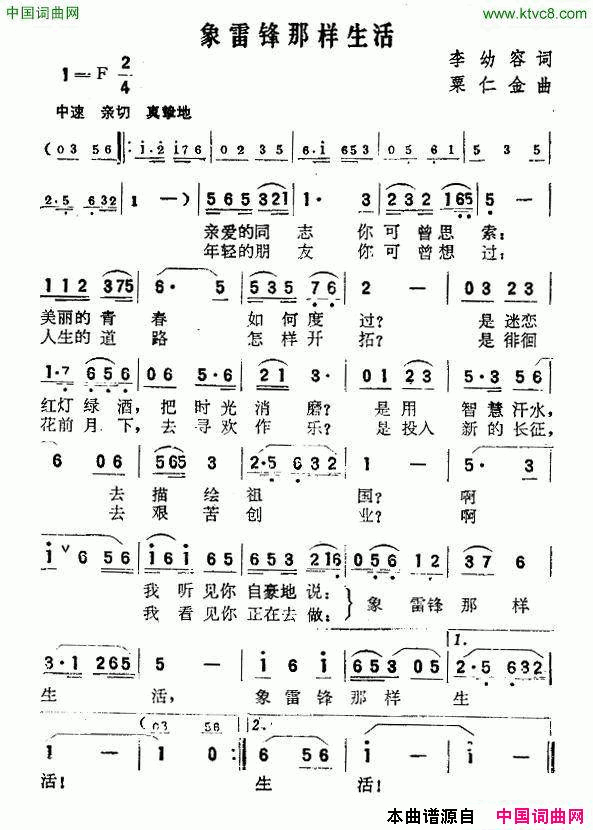 中国词曲网
www.ktvc8.com
象雷锋那样生活
1=F 2/4
李幼容词
粟仁金曲
中速 亲切 真挚地
(03 56 :1·2 176 02 35 6·1 653 05 61 5 35
2·5 632 1 —) 565 321 1· 3 232 165 5 —
亲爱的同志 你可曾思索:
年轻的朋友 你可曾想过:
112 375 6· 5 535 76 2 — 03 23
美丽的青春 如何度过? 是迷恋
人生的道路 怎样开拓? 是徘徊
1·7 656 06 5·6 21 3· 0123 5·3 56
红灯绿酒,把时光消磨? 是用 智慧汗水,
花前月下,去寻欢作乐? 是投入 新的长征,
6 06 565 3 2·5 632 1 — 5· 3
去描绘祖国? 啊
去艰苦创业? 啊
i ∨ 6 56 161 65 653 216 056 12 37 6
我听见你 自豪地说:
我看见你 正在去做:
象雷锋那样
3·1 265 5 — i 6 i 653 05 1. 2·5 632
生活, 象雷锋那样生
(03 56 2.
1 — 1 0 : 6 56 i — i 0
活! 生活!
本曲谱源自 中国词曲网